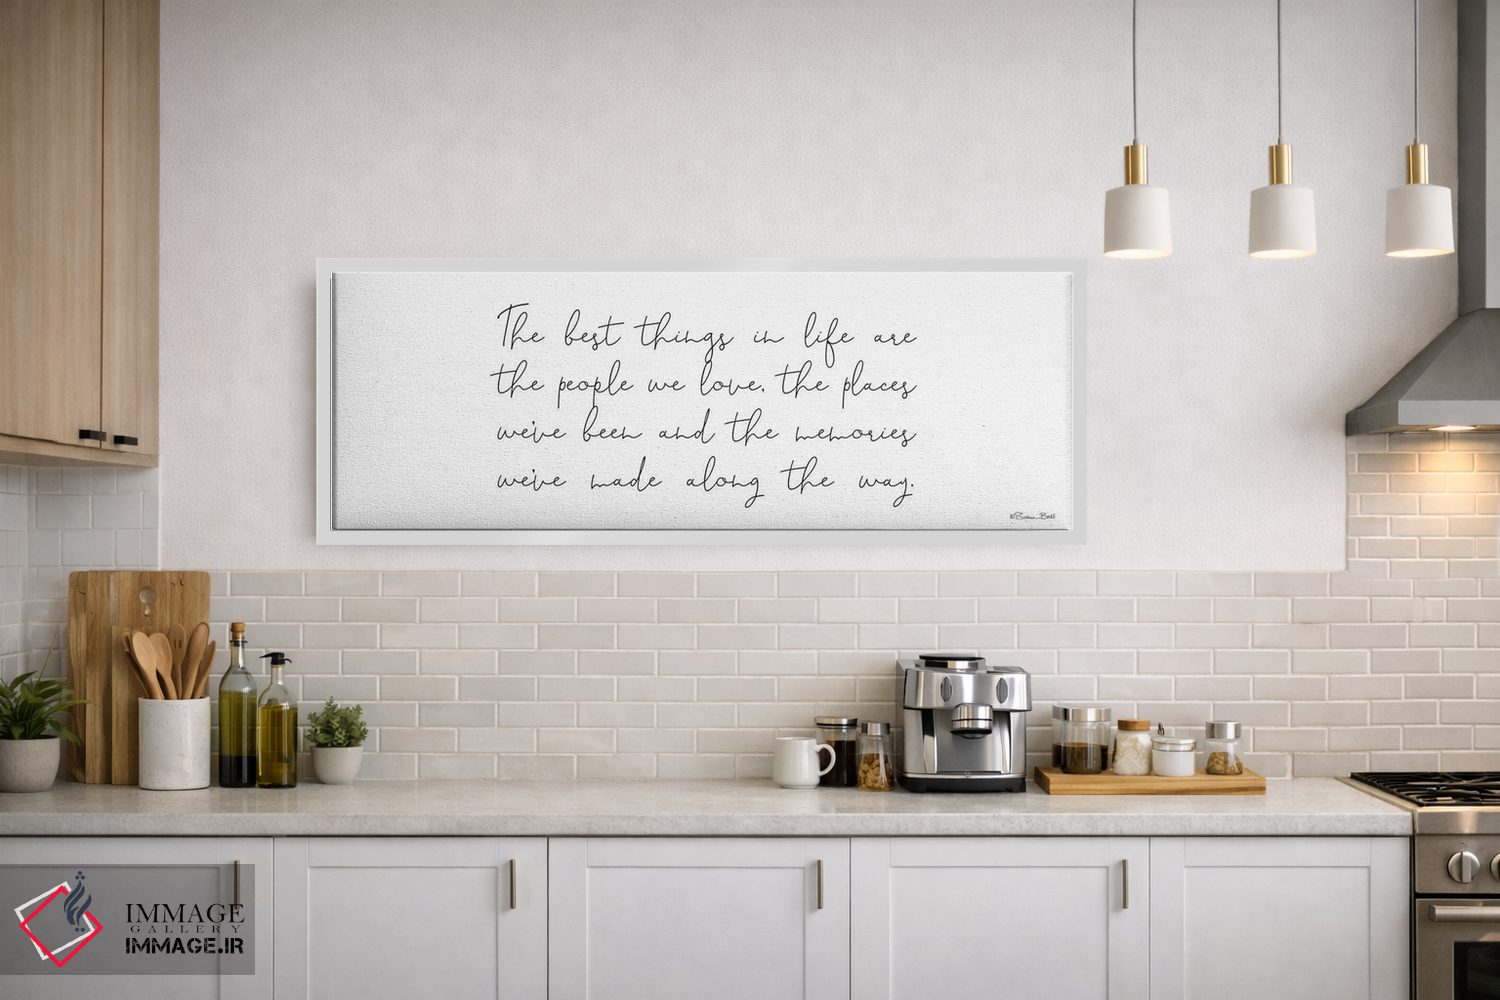 The best things in life are
the people we love, the places
we've been and the memories
we've made along the way.
IMMAGE
GALLERY
IMMAGE.IR